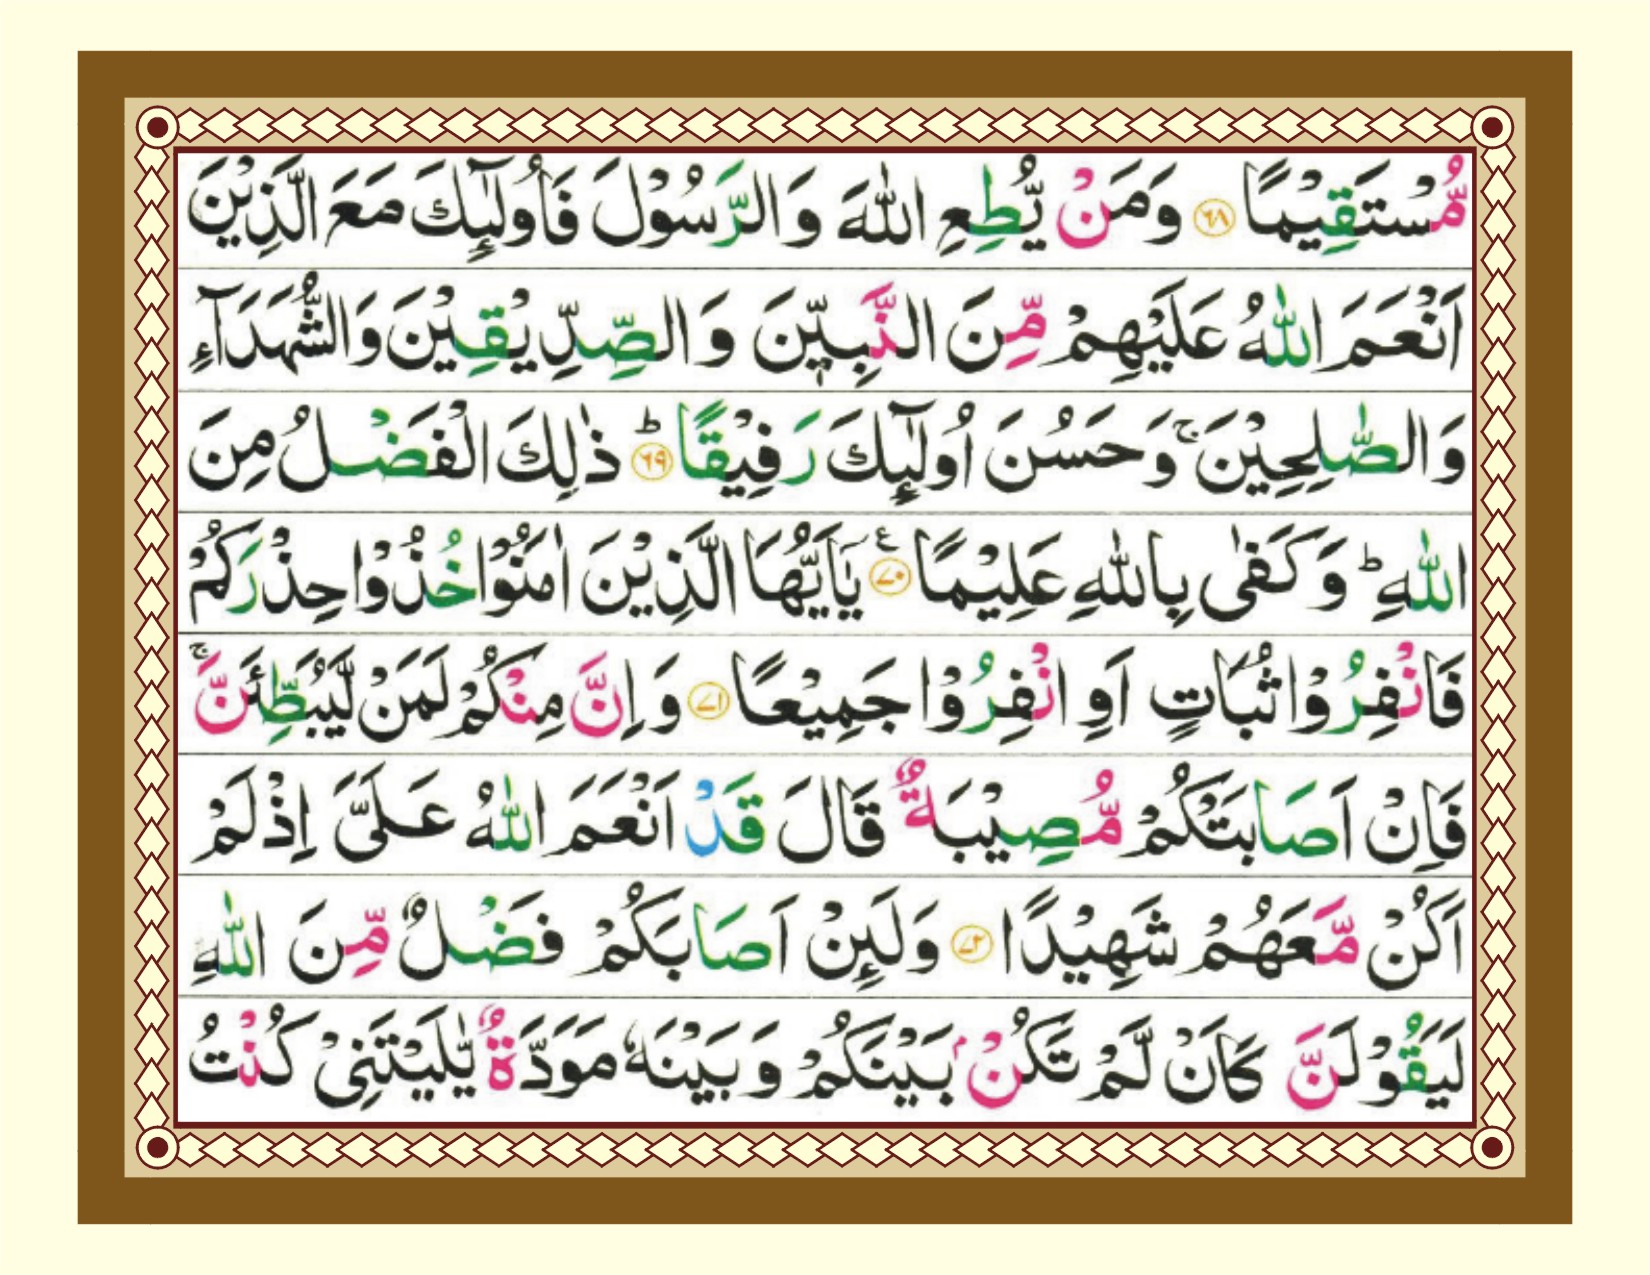 مُّسْتَقِيْمًا ﴿۶۸﴾ وَمَنْ يُّطِعِ اللّٰهَ وَالرَّسُوْلَ فَاُولٰٓئِكَ مَعَ الَّذِيْنَ
اَنْعَمَ اللّٰهُ عَلَيْهِمْ مِّنَ النَّبِيّٖنَ وَالصِّدِّيْقِيْنَ وَالشُّهَدَآءِ
وَالصّٰلِحِيْنَ ۚ وَحَسُنَ اُولٰٓئِكَ رَفِيْقًا ؕ ﴿۶۹﴾ ذٰلِكَ الْفَضْلُ مِنَ
اللّٰهِ ؕ وَكَفٰى بِاللّٰهِ عَلِيْمًا ﴿۷۰﴾ ع يٰۤاَيُّهَا الَّذِيْنَ اٰمَنُوْا خُذُوْا حِذْرَكُمْ
فَانْفِرُوْا ثُبَاتٍ اَوِ انْفِرُوْا جَمِيْعًا ﴿۷۱﴾ وَاِنَّ مِنْكُمْ لَمَنْ لَّيُبَطِّئَنَّ ۚ
فَاِنْ اَصَابَتْكُمْ مُّصِيْبَةٌ قَالَ قَدْ اَنْعَمَ اللّٰهُ عَلَيَّ اِذْ لَمْ
اَكُنْ مَّعَهُمْ شَهِيْدًا ﴿۷۲﴾ وَلَئِنْ اَصَابَكُمْ فَضْلٌ مِّنَ اللّٰهِ
لَيَقُوْلَنَّ كَاَنْ لَّمْ تَكُنْۢ بَيْنَكُمْ وَبَيْنَهٗ مَوَدَّةٌ يّٰلَيْتَنِيْ كُنْتُ